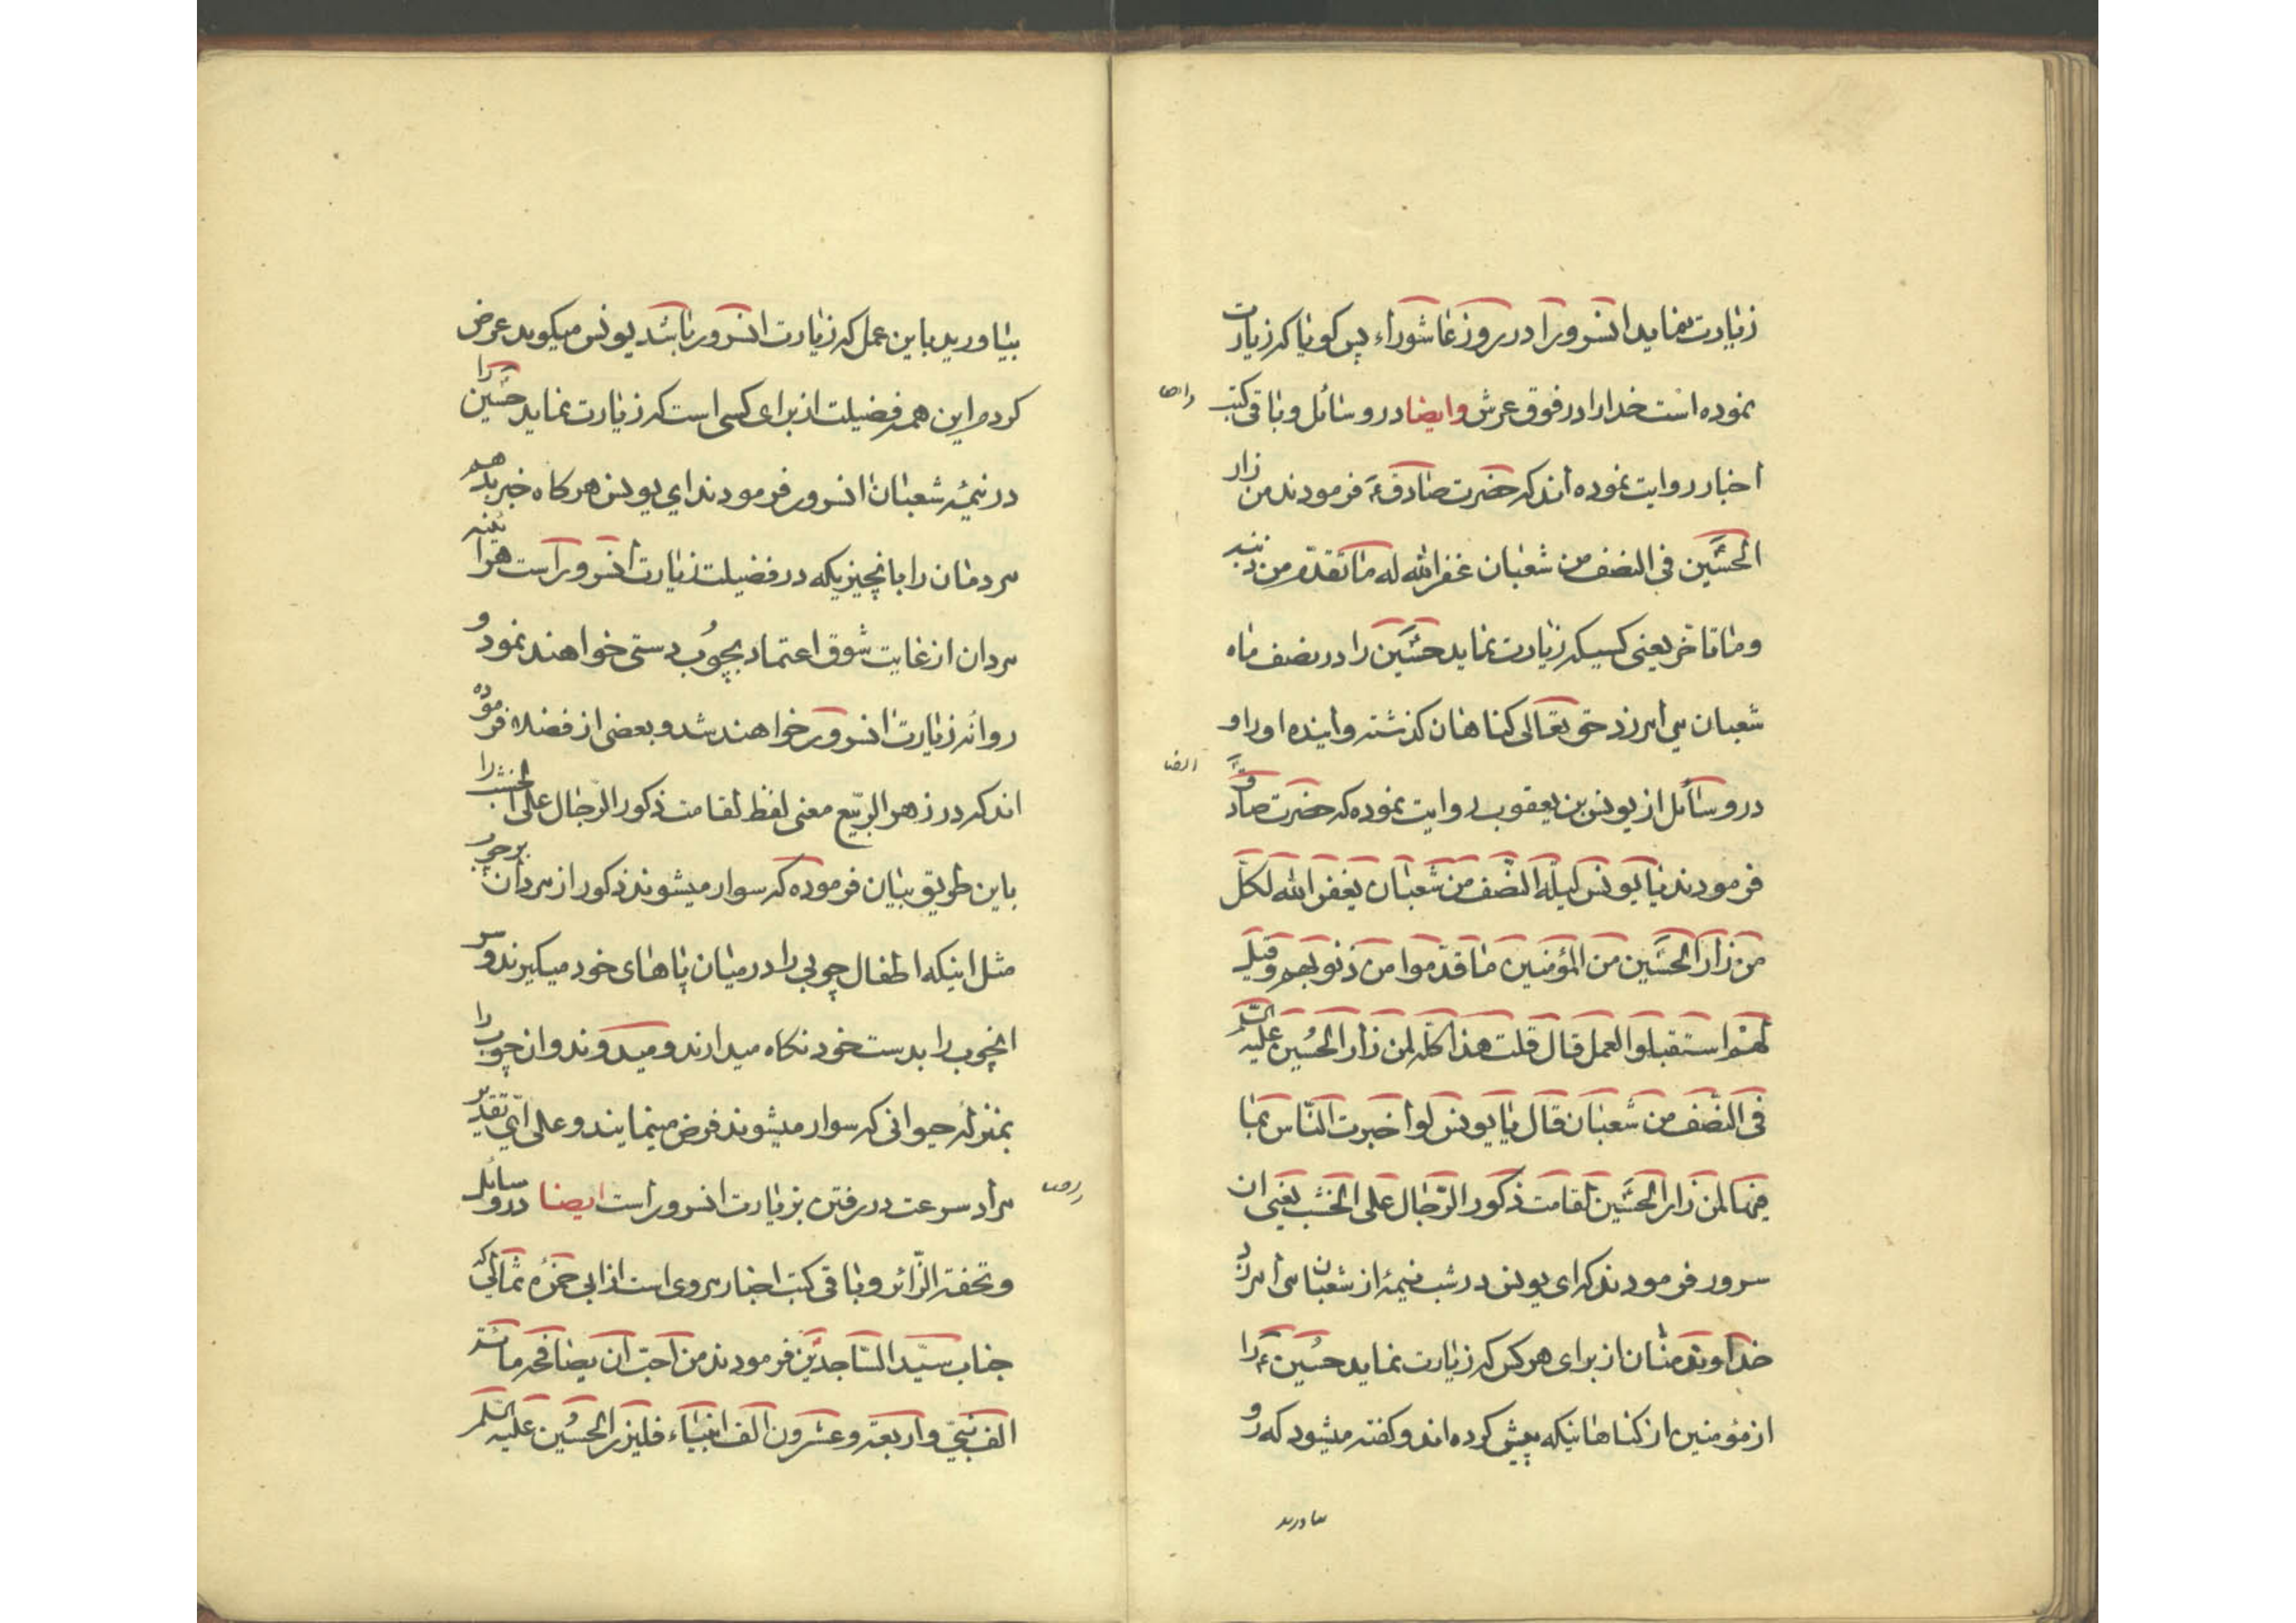 زیارت نماید انسرور را در روز عاشوراء پس کویا که زیارت
نموده است خدا را در فوق عرش وایضا در وسائل و باقی کتب
اخبار روایت نموده اند که حضرت صادق ع فرمودند من زار
الحسین فی النصف من شعبان غفر الله له ما تقدم من ذنبه
و ما تاخر یعنی کسیکه زیارت نماید حسین را در نصف ماه
شعبان می امرزد حق تعالی کناهان کذشته و اینده او را و
ایضا
در وسائل از یونس بن یعقوب روایت نموده که حضرت صادق
فرمودند یا یونس لیلة النصف من شعبان یغفر الله لکل
من زار الحسین من المؤمنین ما قدموا من ذنوبهم و قیل
لهم استقبلوا العمل قال قلت هذا کله لمن زار الحسین علیه السلم
فی النصف من شعبان قال یا یونس لو اخبرت الناس بما
فیها لمن زار الحسین لقامت ذکور الرجال علی الخشب یعنی ان
سرور فرمودند که ای یونس در شب نیمهٔ از شعبان می امرزد
خداوند منان از برای هر کس که زیارت نماید حسین ع را
از مؤمنین از کناهانیکه پیش کرده اند و کفته میشود که رو
بیاورید
بیاورید باین عمل که زیارت انسرور باشد یونس میکوید عرض
کردم این همه فضیلت از برای کسی است که زیارت نماید حسین را
در نیمهٔ شعبان انسرور فرمودند ای یونس هر کاه خبر بدهم
مردمان را بانچیزیکه در فضیلت زیارت انسرور است هر اینه
مردان از غایت شوق اعتماد بچوب دستی خواهند نمود و
روانه زیارت انسرور خواهند شد و بعضی از فضلاء فرموده
اند که در زهر الربیع معنی لفظ لقامت ذکور الرجال علی الخشب را
باین طریق بیان فرموده که سوار میشوند ذکور از مردان بر چوب
مثل اینکه اطفال چوبی را در میان پاهای خود میکیرند و سر
انچوب را بدست خود نکاه میدارند و میدوند و ان چوب را
بمنزلهٔ حیوانی که سوار میشوند فرض مینمایند و علی ای تقدیر
مراد سرعت در رفتن بزیارت انسرور است ایضا در وسائل
و تحفة الزائر و باقی کتب اخبار مروی است از ابی حمزه ثمالی که
جناب سید الساجدین فرمودند من احب ان یصافحه مائة
الف نبی و اربعة و عشرون الف انبیاء فلیزر الحسین علیه السلم